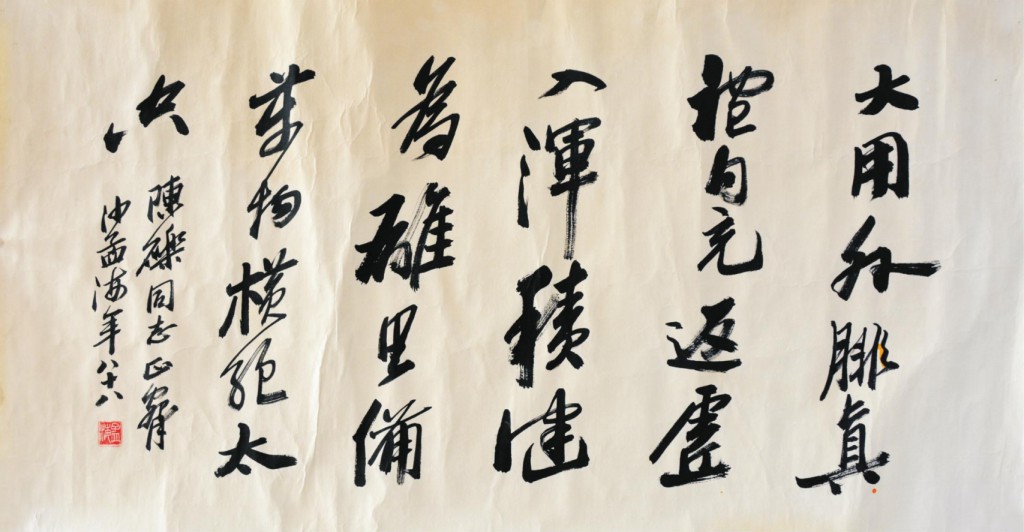 大用外腓真
體内充返虛
入渾積健
為雄具備
萬物橫絕太
空
陳礫同志正
沙孟海年八十八